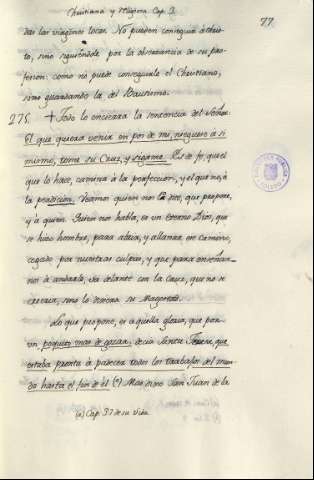 Christiana y Religiosa Cap. 3.
77
das las virgines locas. No pueden conseguir à Chris-
to, sino siguiendole por la observancia de su pro-
fesion: como no puede conseguirle el Christiano,
sino guardando la del Bautismo.
275. + Todo lo encierra la sentencia del Señor:
El que quiera venir en pos de mi, nieguese à si
mismo, tome su Cruz, y sigame. Es de fe, que el
que lo hace, camina à la perfeccion, y el que no, à
la perdicion. Veamos quien nos lo dice, que propone,
y à quien. Quien nos habla, es un Eterno Dios, que
se hizo hombre, para abrir, y allanar este camino,
cegado por nuestras culpas; y que para enseñar-
nos à andarlo, va delante con la Cruz, que no se
excusa, sino lo
su Magestad.
Lo que propone, es aquella gloria, que por
un poquito mas de gozar, decia Santa Teresa, que
estaba pronta à padecer todos los trabajos del mun-
do hasta el fin de él (a) Mas dixo San Juan de la
(a) Cap. 37 de su Vida.